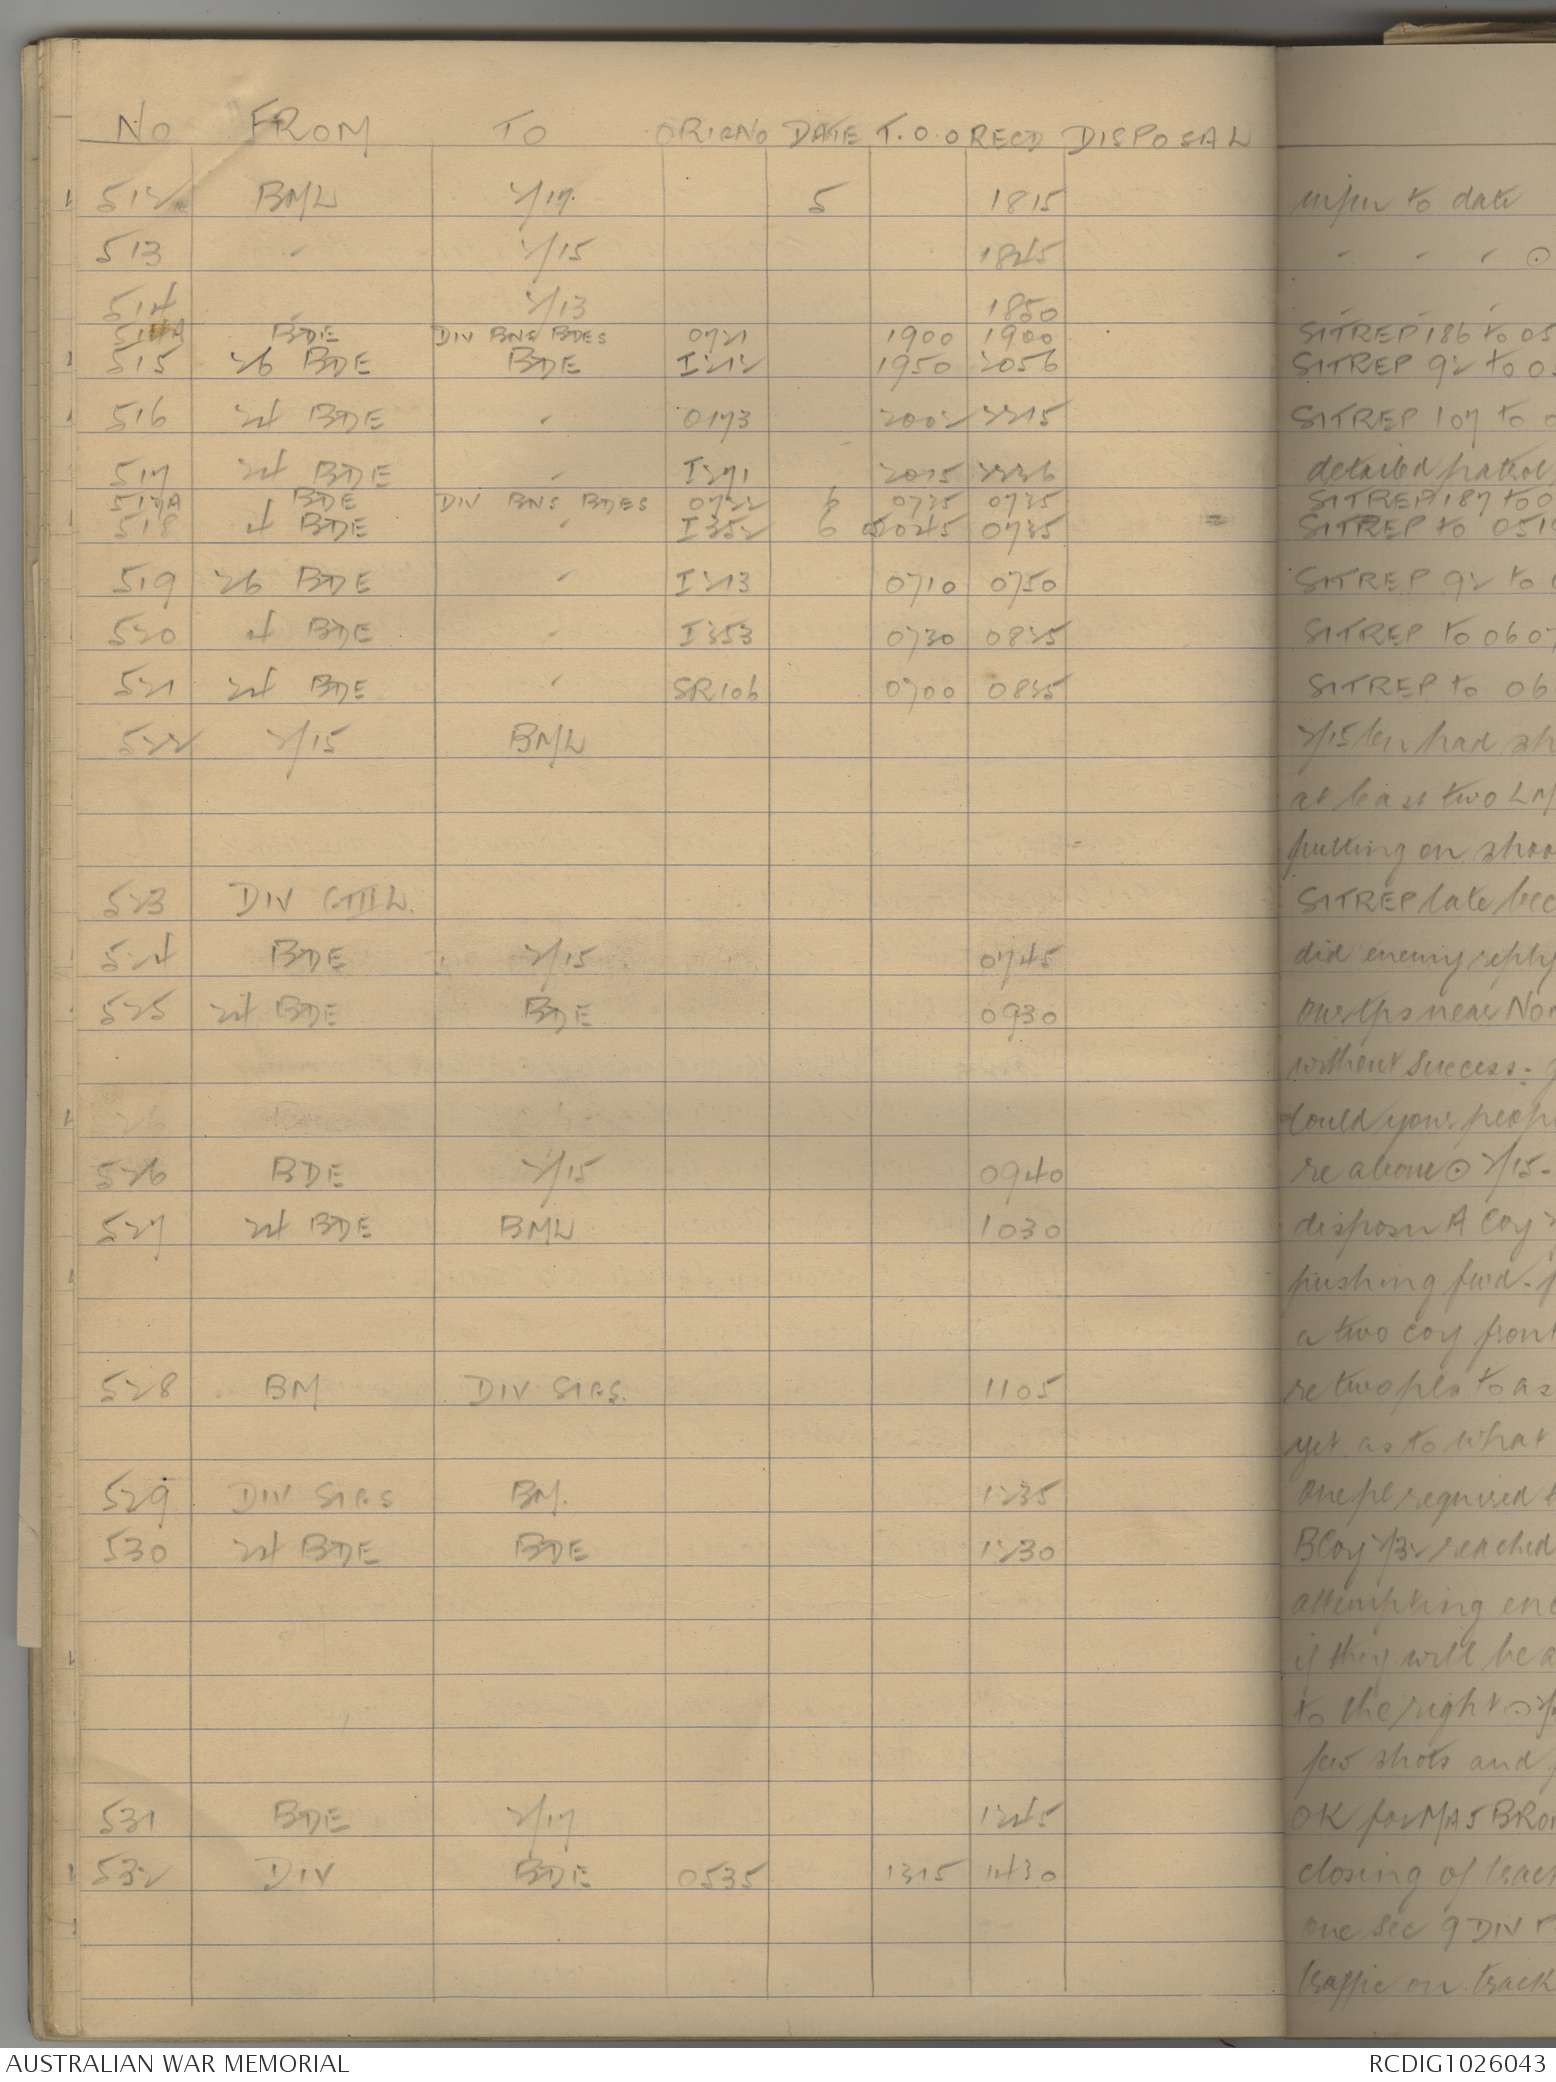 NO FROM TO ORIGNO DATE T.O.O RECD DISPOSAL
512 BML 2/17. 5 1815 in/in to date
513 " 2/15 1845 " " " ⊙
514 2/13 1850
514A BDE DIV BNS BDES 0721 1900 1900 SITREP 186 to 05
515 26 BDE BDE I212 1950 2056 SITREP 92 to 0
516 24 BDE " 0173 2002 2215 SITREP 107 to
517 24 BDE " I271 2015 2236 detailed patrol
517A BDE DIV BNS BDES 0722 6 0735 0735 SITREP 187 to 0
518 4 BDE " I352 6 052045 0735 SITREP to 051
519 26 BDE " I213 0710 0750 SITREP 92 to
520 4 BDE " I353 0730 0835 SITREP to 060
521 24 BDE " SR106 0700 0835 SITREP to 06
522 2/15 BML 2/15 bn had sh
at least two LM
putting on shoo
523 DIV SITREP late bec
524 BDE 2/15 0745 did enemy reply
525 24 BDE BDE 0930 our tps near Nor
without success.
Could your peop
526 BDE 2/15 0940 re above ⊙ 2/15-
527 24 BDE BML 1030 disposn A Coy
pushing fwd.
a two coy front
528 BM DIV SIGS. 1105 re two pls to as
yet as to what
529 DIV SIGS BM. 1235 one pl required
530 24 BDE BDE 1230 B Coy 2/32 reached
attempting enc
if they will be a
to the right ⊙
few shots and
531 BDE 2/17 1245 OK for MAJ BRO
532 DIV BDE 0535 1315 1430 closing of trac
one sec 9 DIV P
traffic on track
AUSTRALIAN WAR MEMORIAL RCDIG1026043